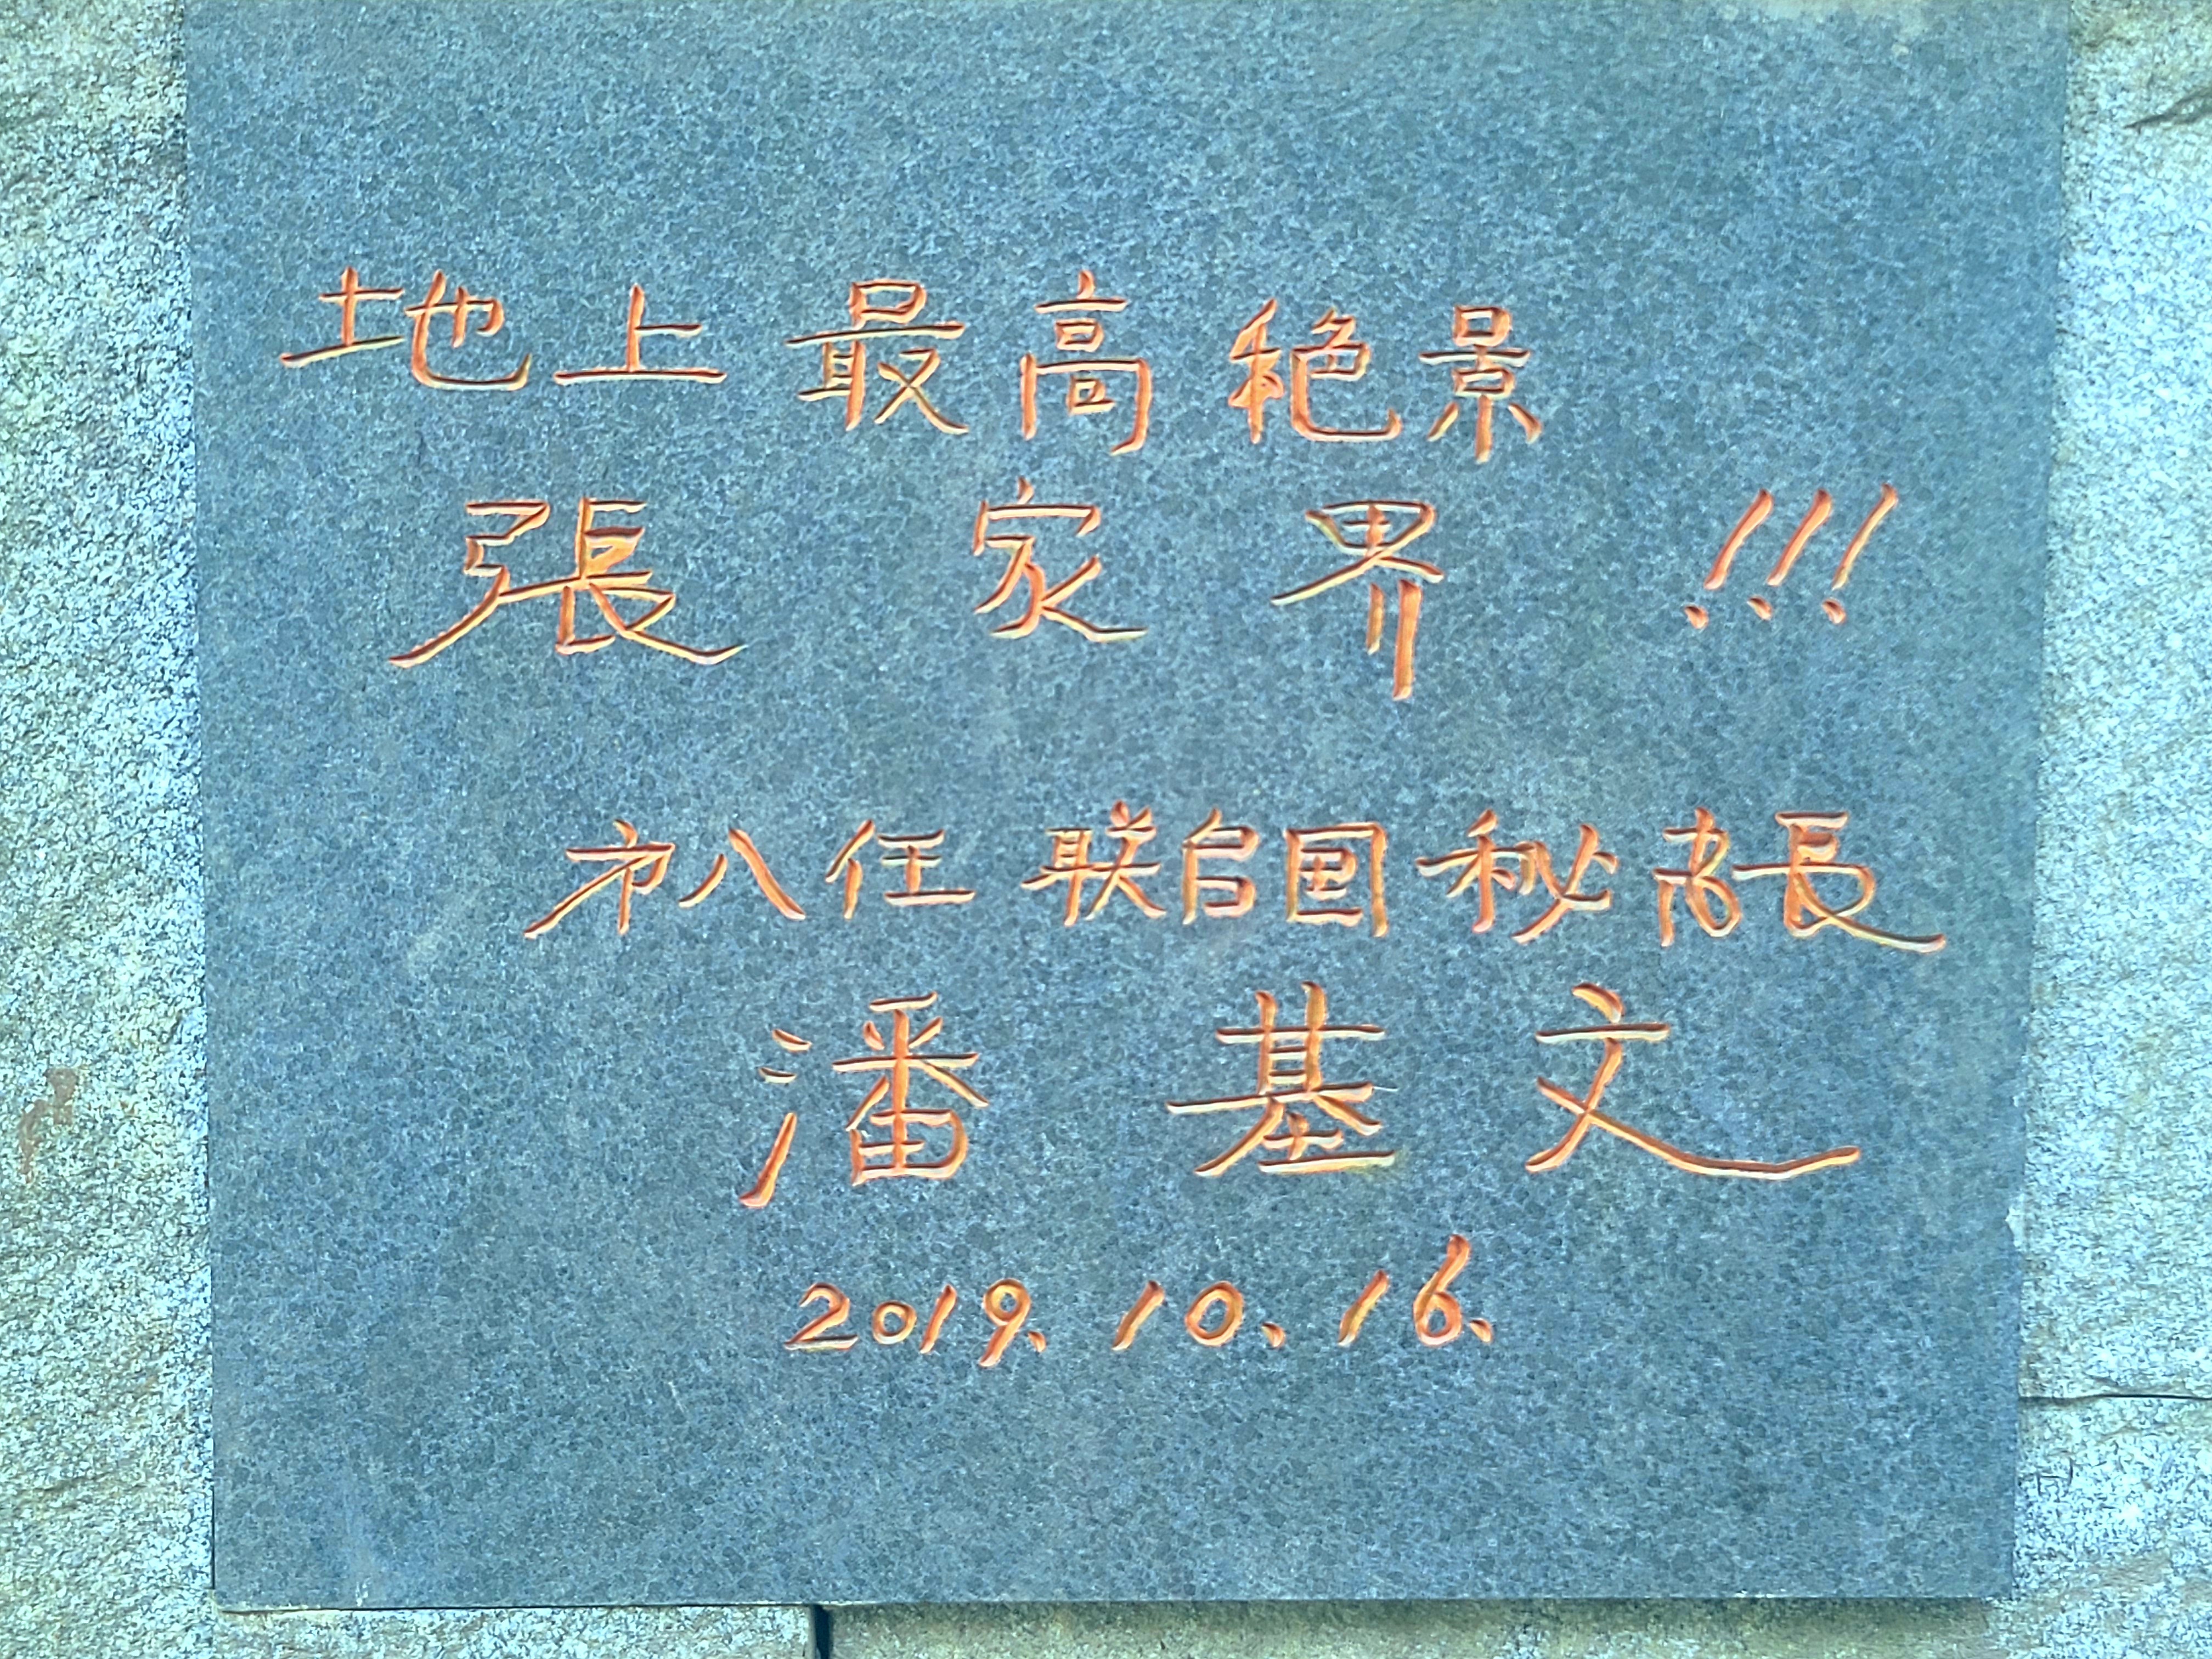 地上最高絶景
張家界!!!
第八任联合国秘书長
潘基文
2019.10.16.